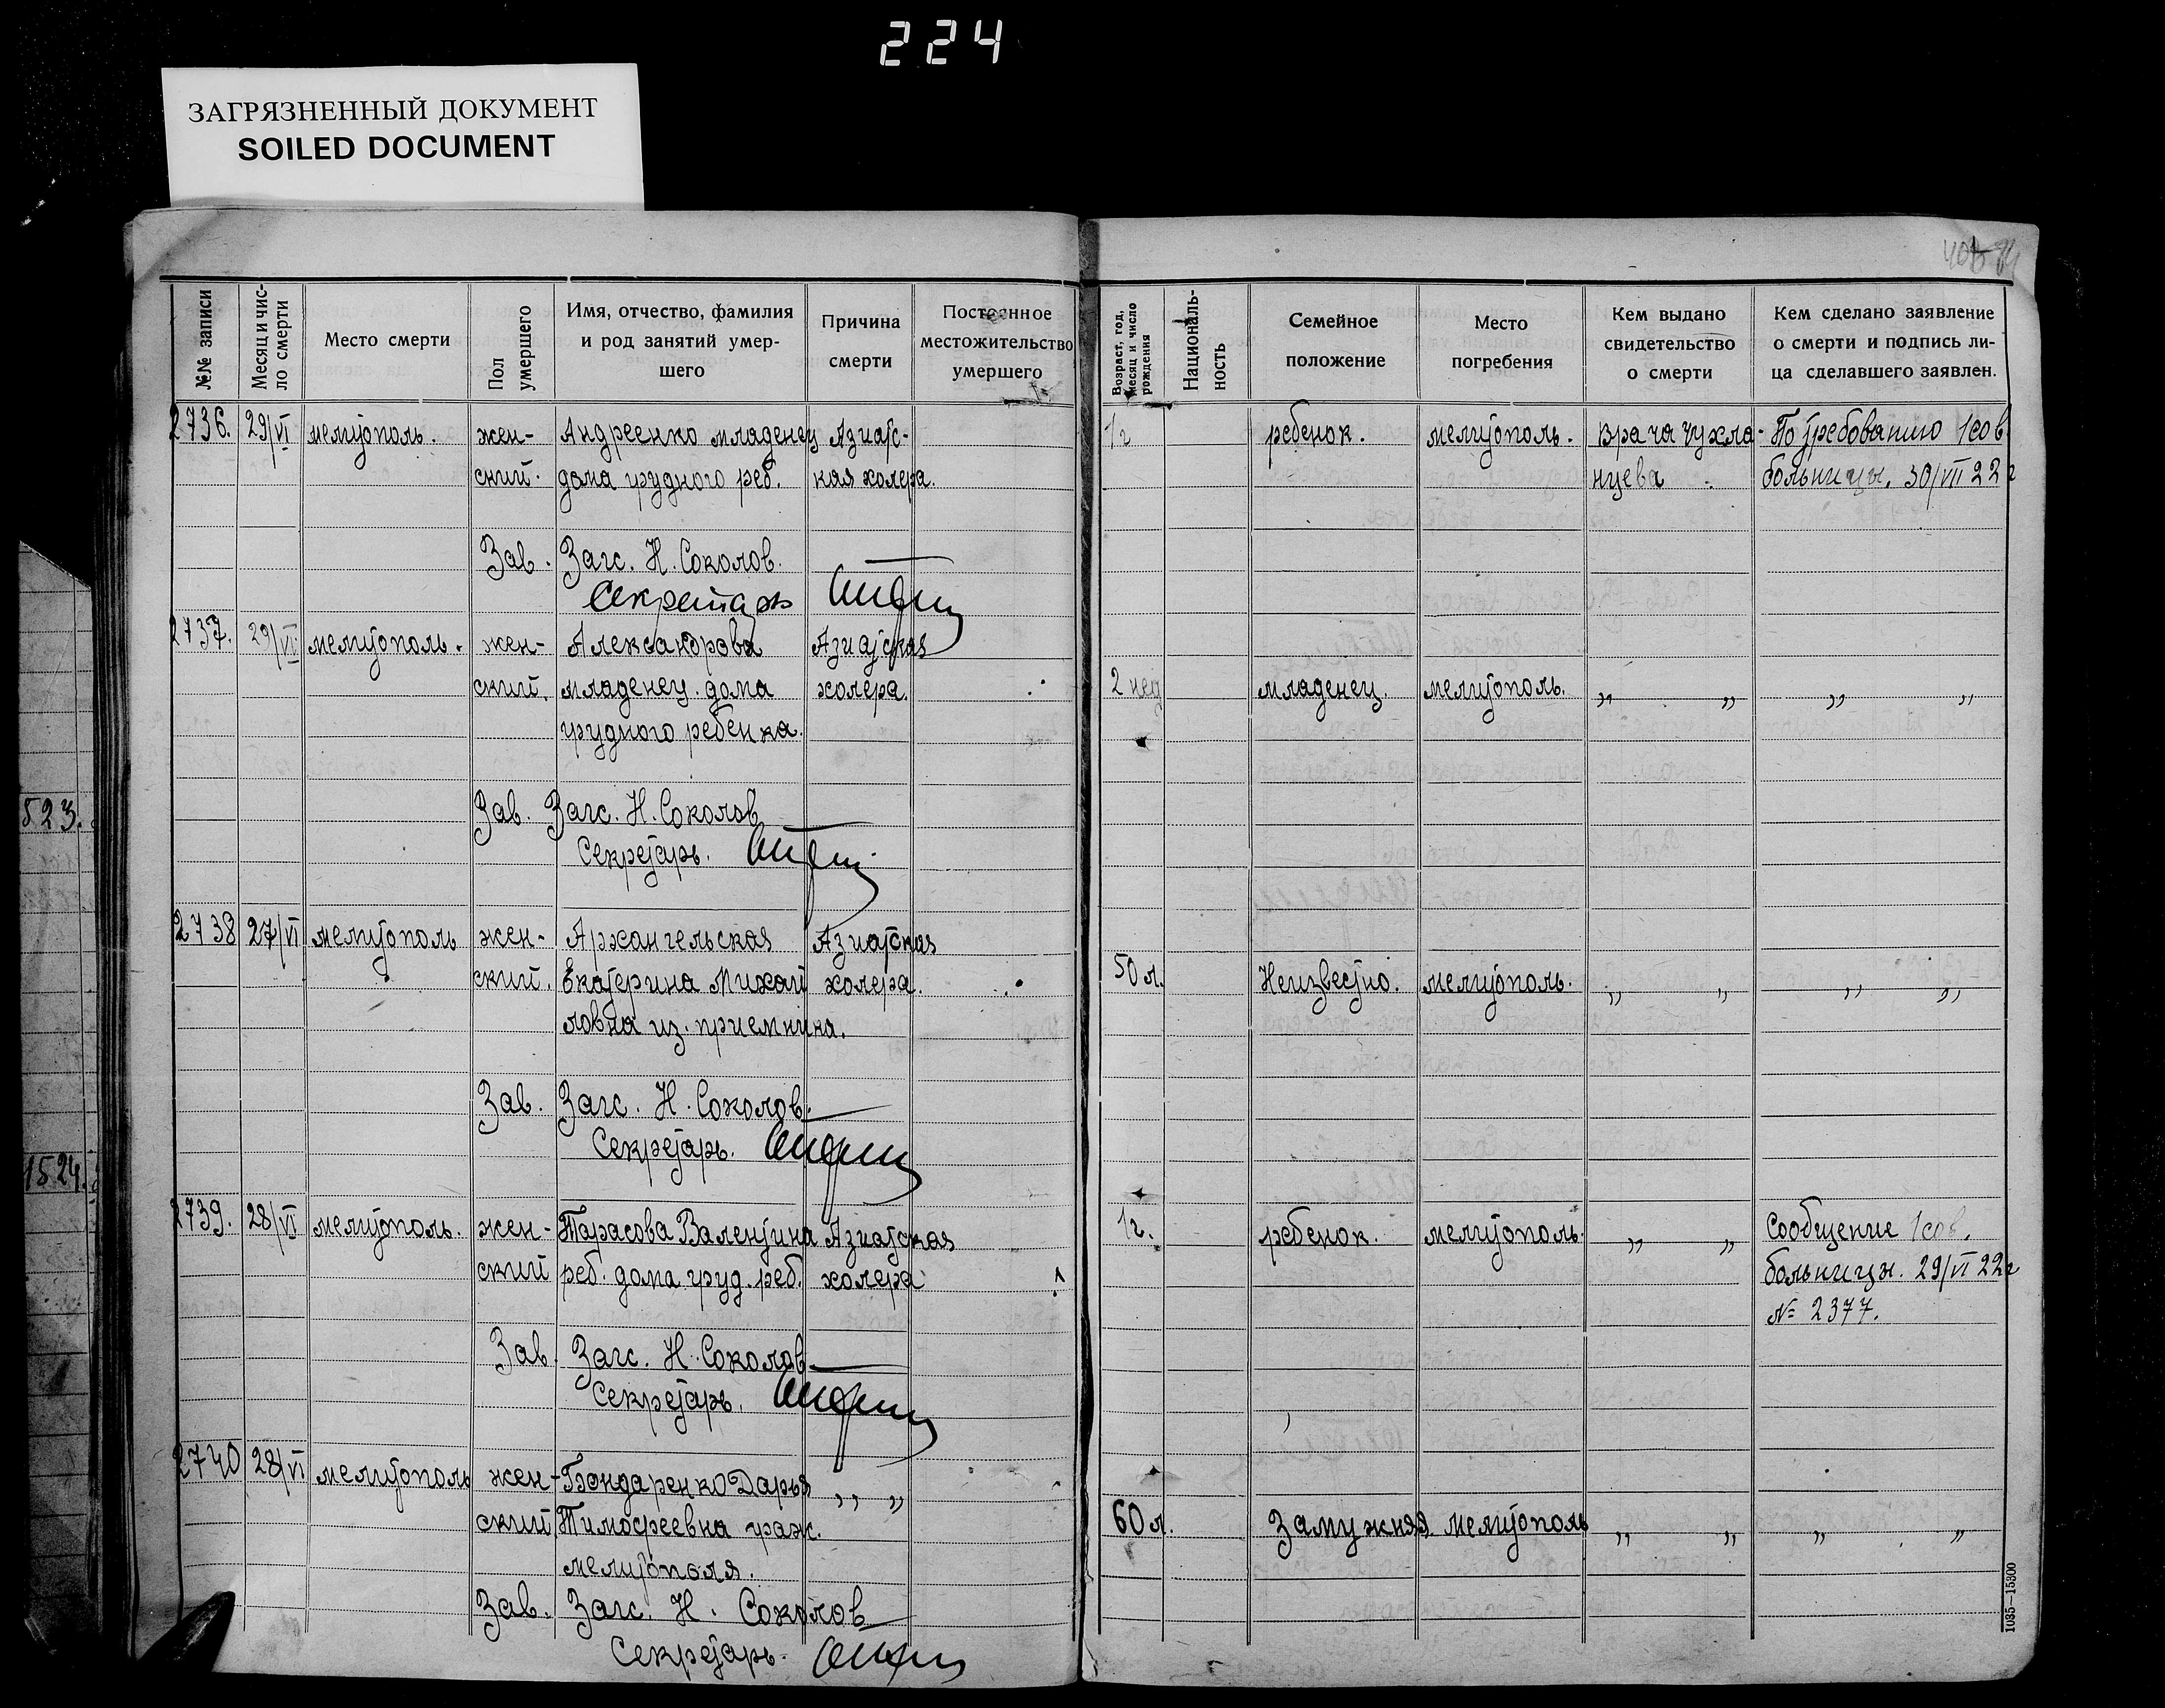 224
ЗАГРЯЗНЕННЫЙ ДОКУМЕНТ
SOILED DOCUMENT
№№ записи
Месяц и чис-
ло смерти
Место смерти
Пол
умершего
Имя, отчество, фамилия
и род занятий умер-
шего
Причина
смерти
Постоянное
местожительство
умершего
Возраст, год,
месяц и число
рождения
Националь-
ность
Семейное
положение
Место
погребения
Кем выдано
свидетельство
о смерти
Кем сделано заявление
о смерти и подпись ли-
ца сделавшего заявлен.
2736. 29/VI мелитополь. жен- Андреенко младенец Азиатс- 1г ребенок. мелитополь. врача Чухла- По требованию 1 сов
ский. дома грудного реб. кая холера. нцева больницы. 30/VII 22 г
Зав. Загс. Н. Соколов.
Секретарь
2737. 29/VI мелитополь. жен- Александрова Азиатская
ский. младенец. дома холера. 2 нед младенец. мелитополь. „ „ „ „
грудного ребенка.
Зав. Загс. Н. Соколов
Секретарь.
2738 27/VI мелитополь жен- Архангельская Азиатская
ский. Екатерина Михай холера. 50 л. Неизвестно. мелитополь. „ „ „ „
ловна из. приемника.
Зав. Загс. Н. Соколов.
Секретарь.
2739. 28/VI мелитополь. жен- Тарасова Валентина Азиатская 1г. ребенок. мелитополь. „ „ Сообщение 1 сов.
ский реб. дома груд. реб. холера больницы. 29/VI 22 г
№ 2377.
Зав. Загс. Н. Соколов
Секретарь.
2740 28/VI мелитополь жен- Бондаренко Дарья „ „
ский. Тимофеевна граж. 60 л. Замужняя. мелитополь „ „ „ „
мелитополя.
Зав. Загс. Н. Соколов
Секретарь.
523.
1524.
1035—15300